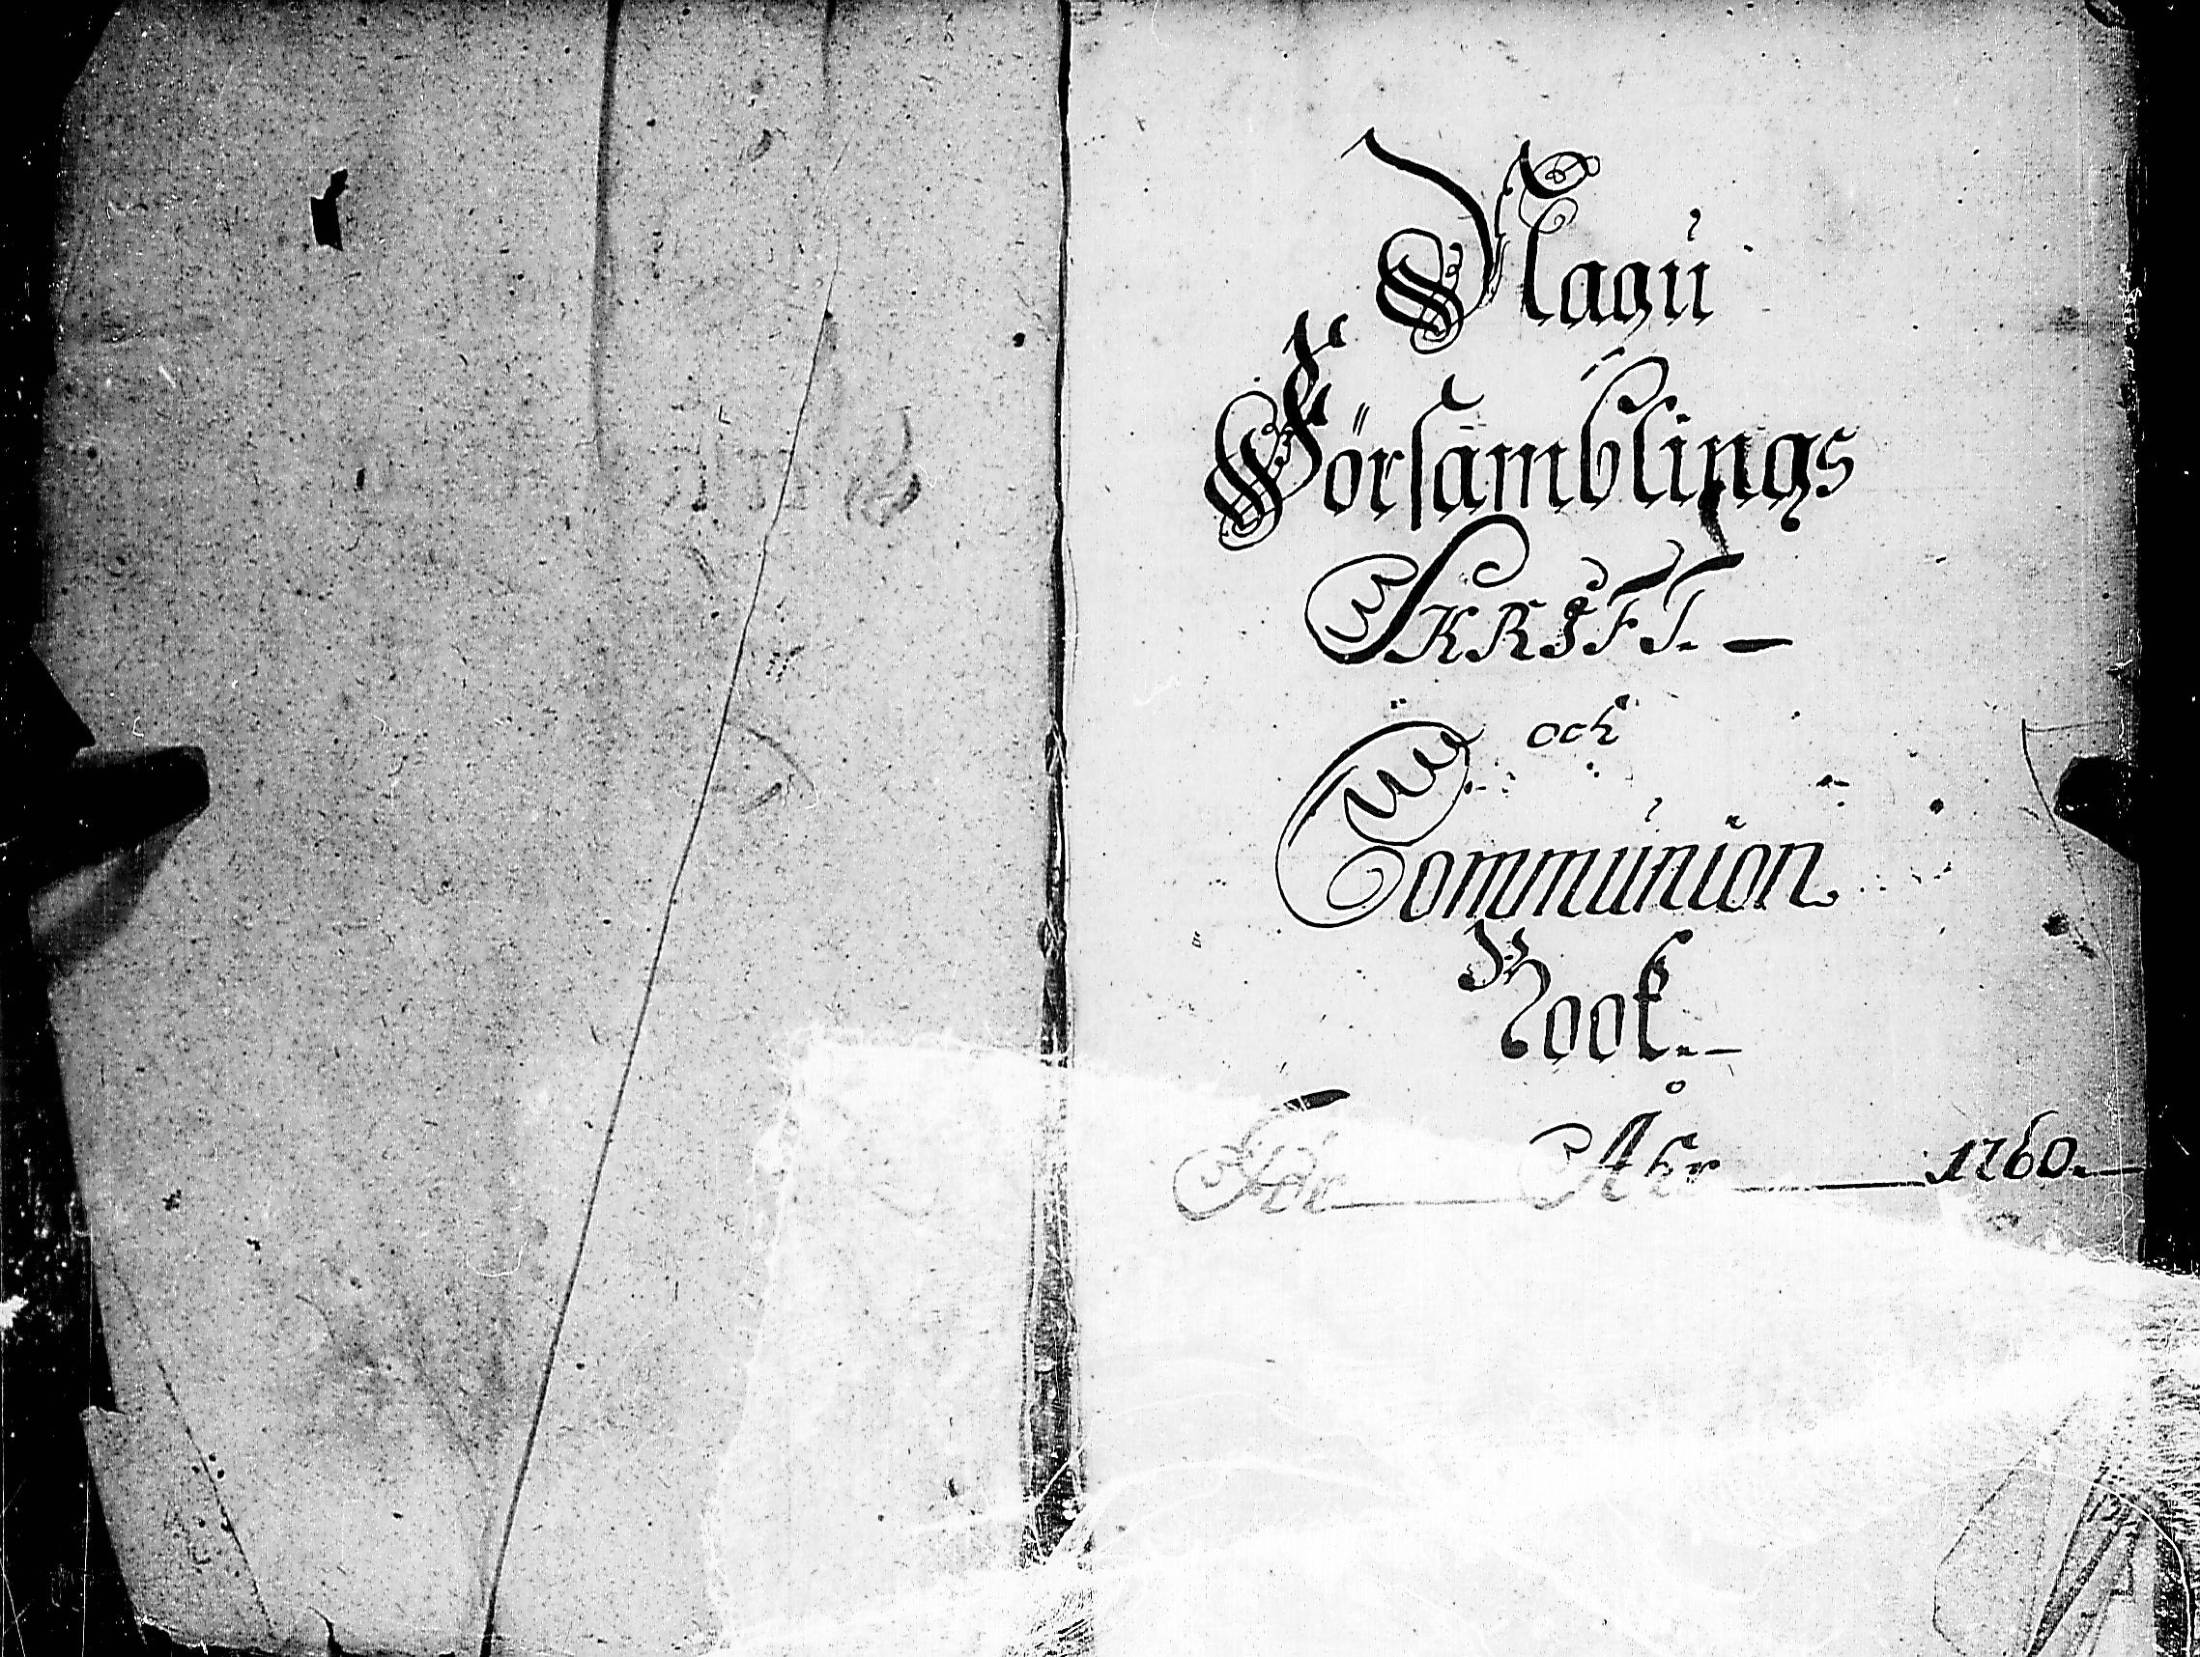 Nagu
Församblings
SKRIFT.
och
Communion
Book.
För Åhr 1760.